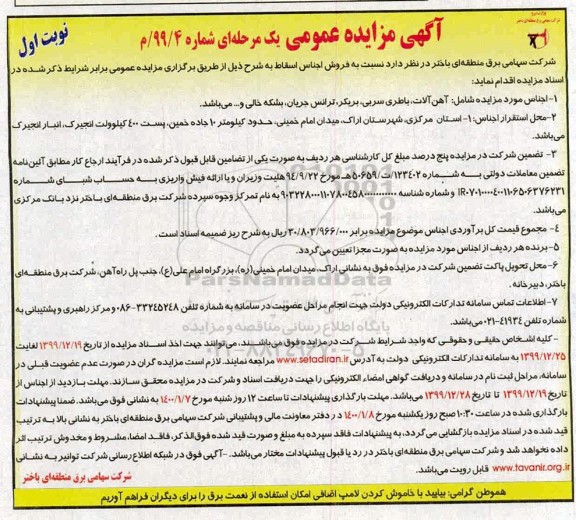 آگهی مزایده عمومی یک مرحله‌ای شماره ۹۹/۴/م
نوبت اول
شرکت سهامی برق منطقه‌ای باختر در نظر دارد نسبت به فروش اجناس اسقاط به شرح ذیل از طریق برگزاری مزایده عمومی برابر شرایط ذکر شده در
اسناد مزایده اقدام نماید:
۱-اجناس مورد مزایده شامل: آهن‌آلات، باطری سربی، بریکر، ترانس جریان، بشکه خالی و... می‌باشد.
۲-محل استقرار اجناس: ۱- استان مرکزی، شهرستان اراک، میدان امام خمینی، حدود کیلومتر ۱۰ جاده خمین، پست ۴۰۰ کیلوولت انجیرک، انبار انجیرک
می‌باشد.
۳- تضمین شرکت در مزایده پنج درصد مبلغ کل کارشناسی هر ردیف به صورت یکی از تضامین قابل قبول ذکر شده در فرآیند ارجاع کار مطابق آئین‌نامه
تضمین معاملات دولتی به شماره ۱۲۳۴۰۲/ت/۵۰۶۵۹هـ مورخ ۹۴/۹/۲۲ هیئت وزیران و یا ارائه فیش واریزی به حساب شبای شماره
IR۰۷۰۱۰۰۰۰۴۰۰۱۱۰۶۵۰۶۳۷۶۲۳۱ و شماره شناسه ۹۰۳۲۲۸۰۰۰۱۱۰۷۸۰۰۴۵۸۰۰۰۰۰۰۰۰۰۰ به نام تمرکز وجوه سپرده شرکت برق منطقه‌ای باختر نزد بانک مرکزی
می‌باشد.
۴- مجموع قیمت کل برآوردی اجناس موضوع مزایده برابر ۳۰/۸۰۳/۹۶۶/۰۰۰ ریال به شرح ریز ضمیمه اسناد است.
۵- برنده هر ردیف از اجناس مورد مزایده به صورت مجزا تعیین می‌گردد.
۶- محل تحویل پاکت تضمین شرکت در مزایده فوق به نشانی اراک، میدان امام خمینی(ره)، بزرگراه امام علی(ع)، جنب پل راه‌آهن، شرکت برق منطقه‌ای
باختر، دبیرخانه.
۷- اطلاعات تماس سامانه تدارکات الکترونیکی دولت جهت انجام مراحل عضویت در سامانه به شماره تلفن ۳۳۲۴۵۲۴۸-۰۸۶ و مرکز راهبری و پشتیبانی به
شماره تلفن ۴۱۹۳۴-۰۲۱ می‌باشد.
- کلیه اشخاص حقیقی و حقوقی که واجد شرایط شرکت در مزایده فوق می‌باشند، می‌توانند جهت اخذ اسناد مزایده از تاریخ ۱۳۹۹/۱۲/۱۹ لغایت
۱۳۹۹/۱۲/۲۵ به سامانه تدارکات الکترونیکی دولت به آدرس www.setadiran.ir مراجعه نمایند. لازم است مزایده گران در صورت عدم عضویت قبلی در
سامانه، مراحل ثبت نام در سامانه و دریافت گواهی امضاء الکترونیکی را جهت دریافت اسناد و شرکت در مزایده محقق سازند. مهلت بازدید از اجناس از
تاریخ ۱۳۹۹/۱۲/۱۹ تا تاریخ ۱۳۹۹/۱۲/۲۸ می‌باشد. مهلت بارگذاری پیشنهادات تا ساعت ۱۲ روز شنبه مورخ ۱۴۰۰/۱/۷ به نشانی فوق می‌باشد. ضمنا پیشنهادات
بارگذاری شده در ساعت ۱۰:۳۰ صبح روز یکشنبه مورخ ۱۴۰۰/۱/۸ در دفتر معاونت مالی و پشتیبانی شرکت سهامی برق منطقه‌ای باختر به نشانی بالا به ترتیب
قید شده در اسناد مزایده بازگشایی می‌گردد، به پیشنهادات فاقد سپرده به مبلغ و صورت قید شده فوق‌الذکر، فاقد امضا، مشروط و مخدوش ترتیب اثر
داده نخواهد شد و شرکت سهامی برق منطقه‌ای باختر در رد یا قبول پیشنهادات مختار می‌باشد. -آگهی فوق در شبکه اطلاع‌رسانی شرکت توانیر به نشانی
www.tavanir.org.ir قابل رویت می‌باشد.
شرکت سهامی برق منطقه‌ای باختر
هموطن گرامی: بیایید با خاموش کردن لامپ اضافی امکان استفاده از نعمت برق را برای دیگران فراهم آوریم